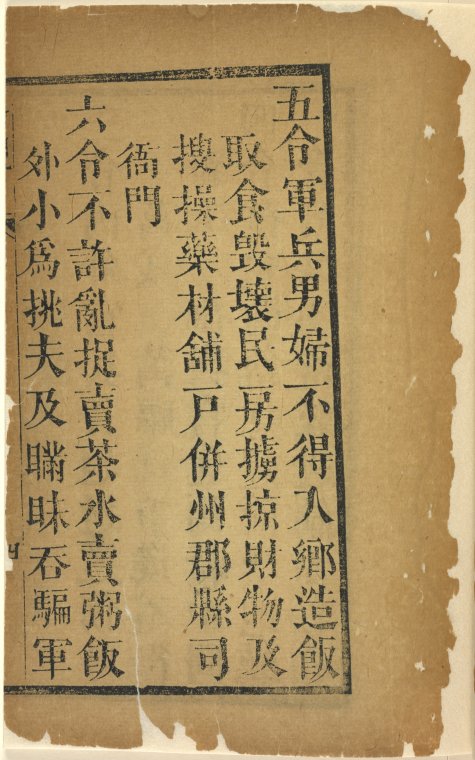 五令軍兵男婦不得入鄉造飯
取食毀壞民房擄掠財物及
搜操藥材舖戶併州郡縣司
衙門
六令不許亂捉賣茶水賣粥飯
外小為挑夫及瞞昧吞騙軍